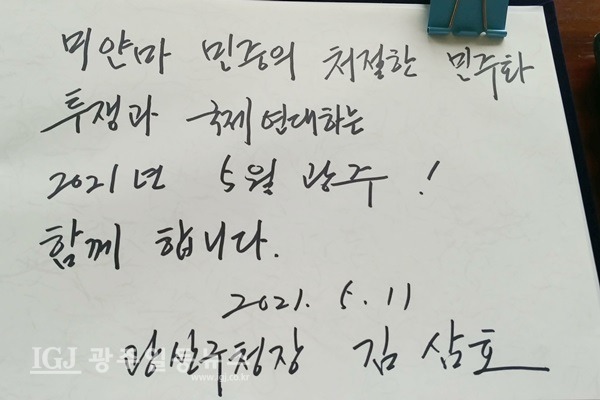 미얀마 민중의 처절한 민주화
투쟁과 국제연대하는
2021년 5월 광주!
함께 합니다.
2021. 5. 11
광산구청장 김삼호
IGJ 광주일등뉴스
www.igj.co.kr